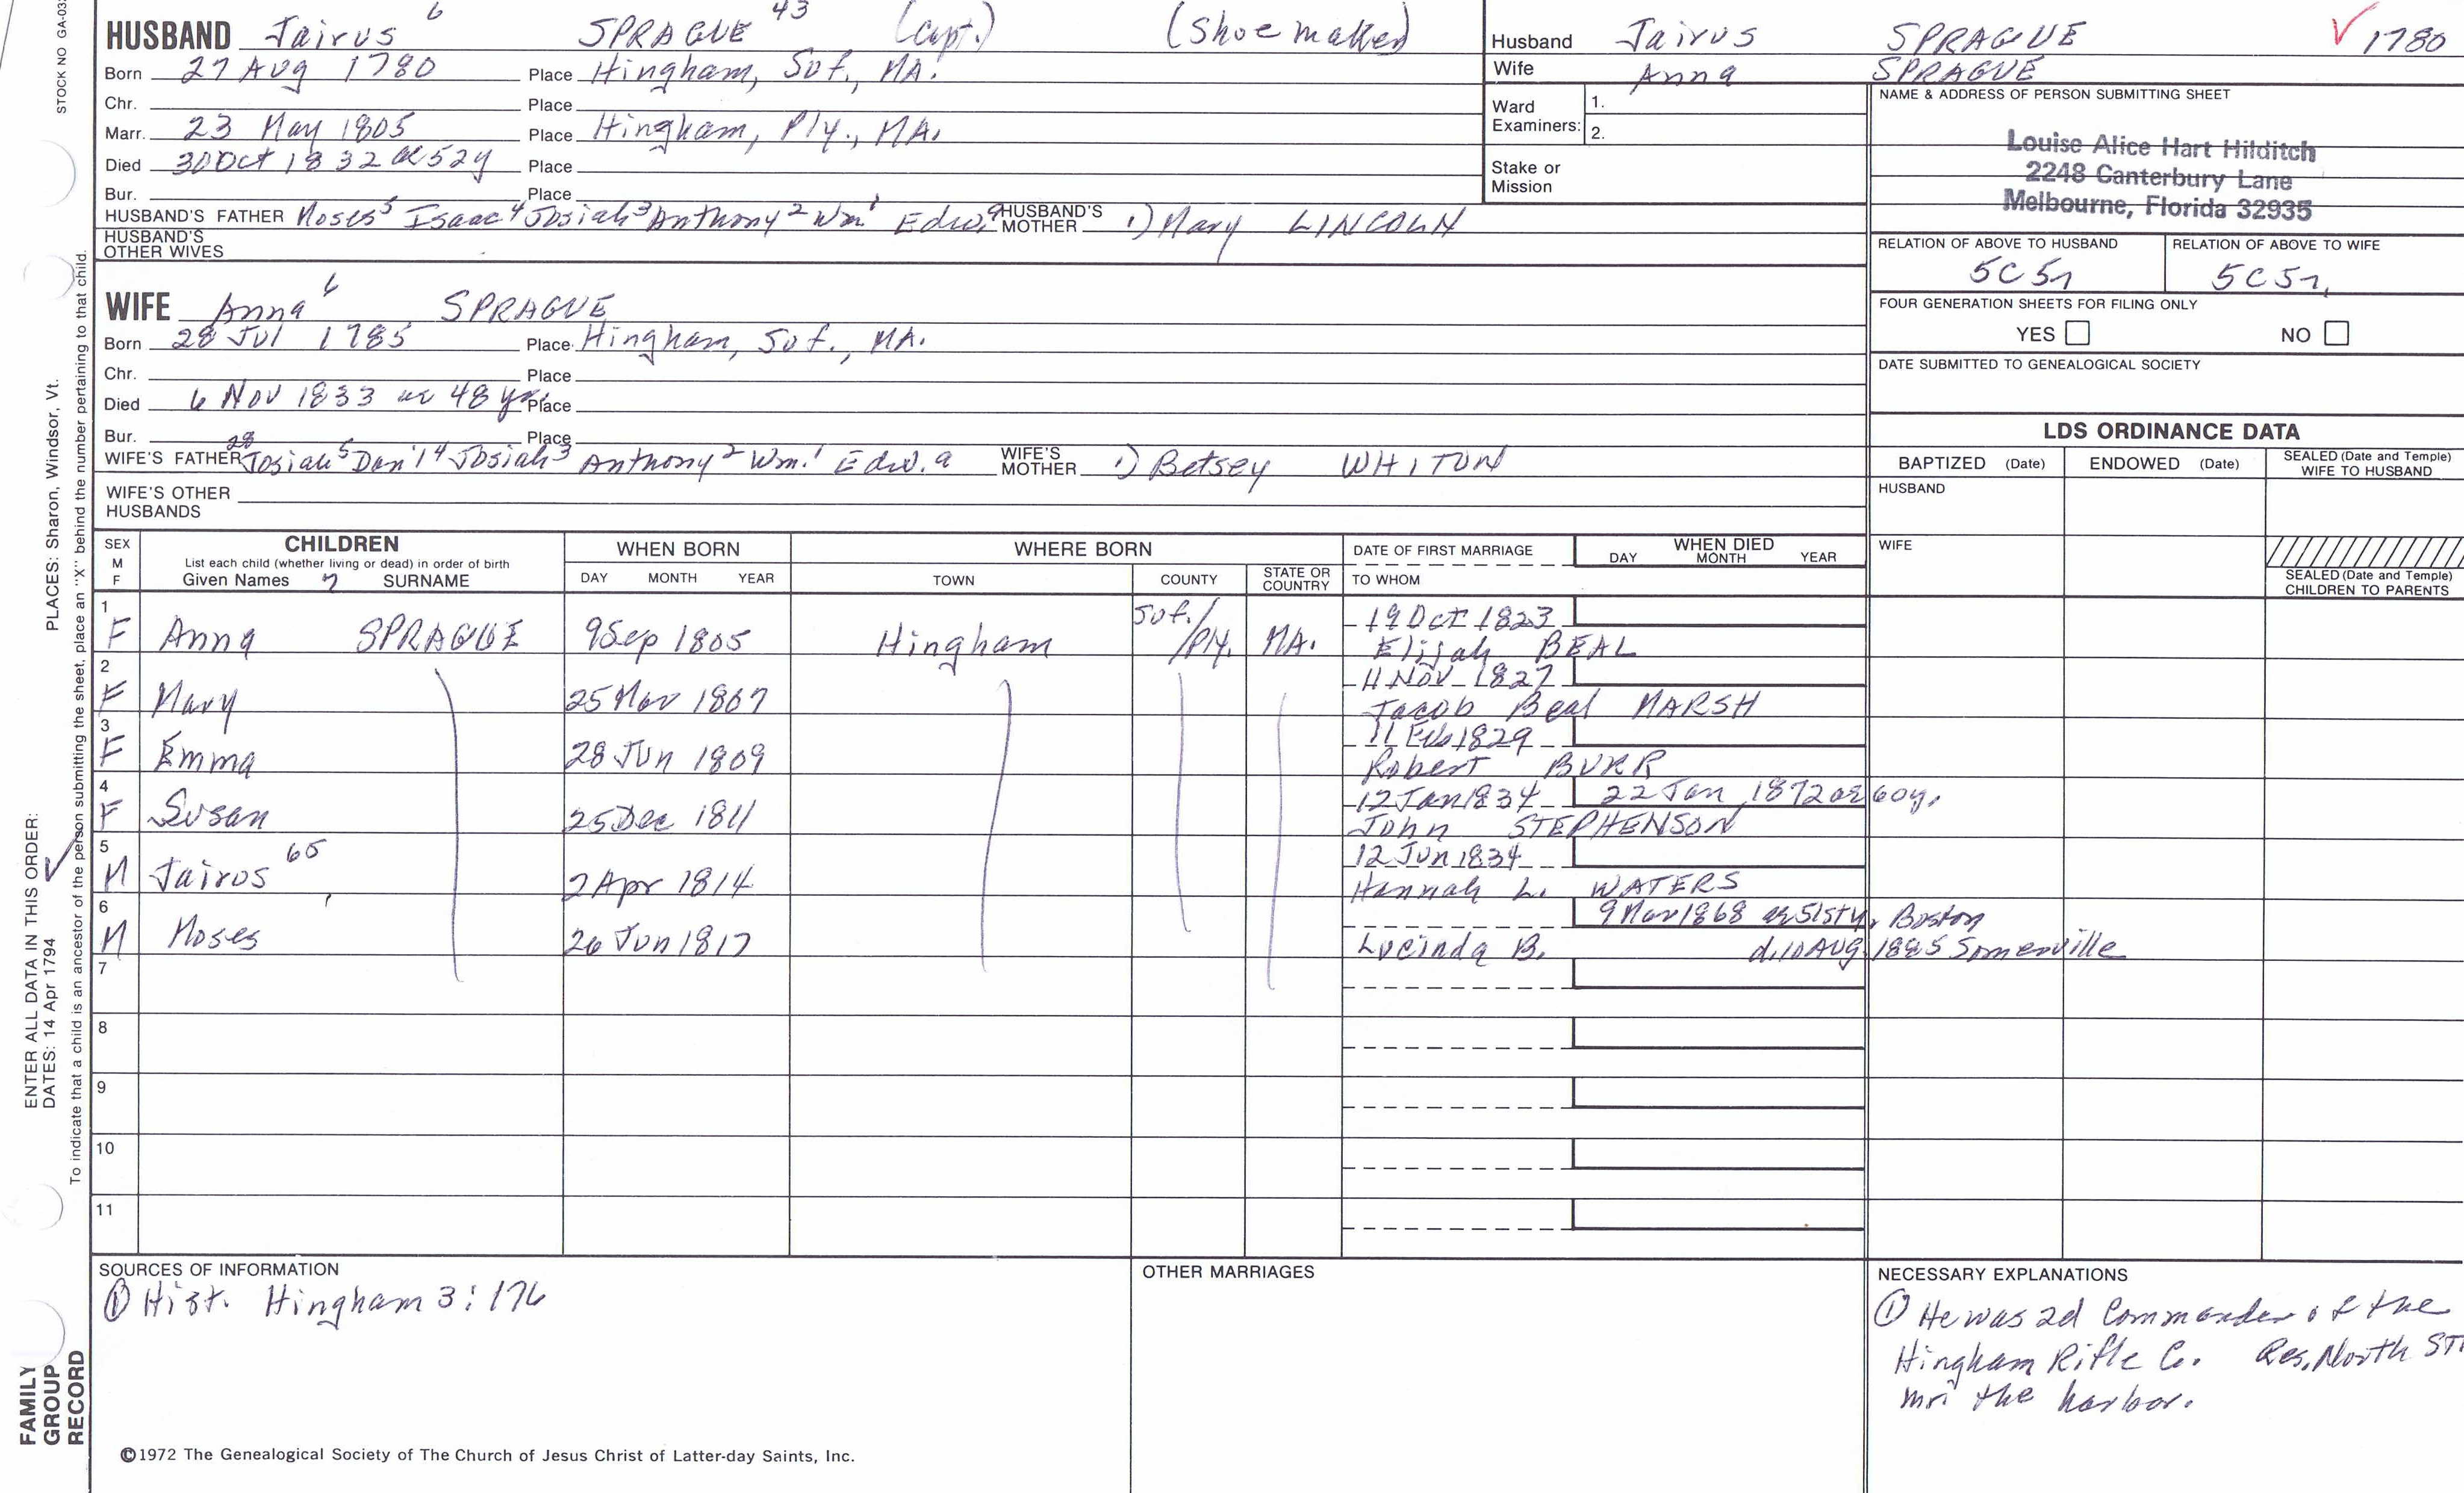 STOCK NO GA-03
HUSBAND Jairus 6 SPRAGUE 43 (Capt.) (Shoe maker)
Born 27 Aug 1780 Place Hingham, Suf., MA.
Chr. Place
Marr. 23 May 1805 Place Hingham, Ply., MA.
Died 30 Oct 1832 ae 52y Place
Bur. Place
HUSBAND'S FATHER Moses5 Isaac4 Josiah3 Anthony2 Wm1 Edw.a HUSBAND'S MOTHER 1) Mary LINCOLN
HUSBAND'S OTHER WIVES
Husband Jairus SPRAGUE ✓ 1780
Wife Anna SPRAGUE
Ward Examiners: 1.
2.
Stake or Mission
NAME & ADDRESS OF PERSON SUBMITTING SHEET
Louise Alice Hart Hilditch
2248 Canterbury Lane
Melbourne, Florida 32935
RELATION OF ABOVE TO HUSBAND RELATION OF ABOVE TO WIFE
5C5r 5C5r,
FOUR GENERATION SHEETS FOR FILING ONLY
YES NO
DATE SUBMITTED TO GENEALOGICAL SOCIETY
WIFE Anna 6 SPRAGUE
Born 28 Jul 1785 Place Hingham, Suf., MA.
Chr. Place
Died 6 Nov 1833 ae 48 yr. Place
Bur. Place
28
WIFE'S FATHER Josiah5 Dan'l4 Josiah3 Anthony2 Wm.1 Edw.a WIFE'S MOTHER 1) Betsey WHITON
WIFE'S OTHER HUSBANDS
LDS ORDINANCE DATA
BAPTIZED (Date) ENDOWED (Date) SEALED (Date and Temple) WIFE TO HUSBAND
HUSBAND
WIFE
SEALED (Date and Temple) CHILDREN TO PARENTS
SEX M F
CHILDREN
List each child (whether living or dead) in order of birth
Given Names 7 SURNAME
WHEN BORN
DAY MONTH YEAR
WHERE BORN
TOWN COUNTY STATE OR COUNTRY
DATE OF FIRST MARRIAGE
TO WHOM
WHEN DIED
DAY MONTH YEAR
1 F Anna SPRAGUE 9 Sep 1805 Hingham Suf./Ply. MA. 19 Oct 1823
Elijah BEAL
2 F Mary 25 Mar 1807 11 Nov 1827
Jacob Beal MARSH
3 F Emma 28 Jun 1809 11 Feb 1829
Robert BURR
4 F Susan 25 Dec 1811 12 Jan 1834 22 Jan 1872 ae 60y.
John STEPHENSON
5 M Jairus 65 2 Apr 1814 12 Jun 1834
Hannah L. WATERS
6 M Moses 26 Jun 1817 9 Mar 1868 ae 51st y, Boston
Lucinda B. d. 10 AUG 1885 Somerville
7
8
9
10
11
SOURCES OF INFORMATION
① Hist. Hingham 3:176
OTHER MARRIAGES
NECESSARY EXPLANATIONS
① He was 2d Commander of the
Hingham Rifle Co. Res. North ST
the harbor.
©1972 The Genealogical Society of The Church of Jesus Christ of Latter-day Saints, Inc.
FAMILY GROUP RECORD
ENTER ALL DATA IN THIS ORDER:
DATES: 14 Apr 1794
PLACES: Sharon, Windsor, Vt.
To indicate that a child is an ancestor of the person submitting the sheet, place an "X" behind the number pertaining to that child.